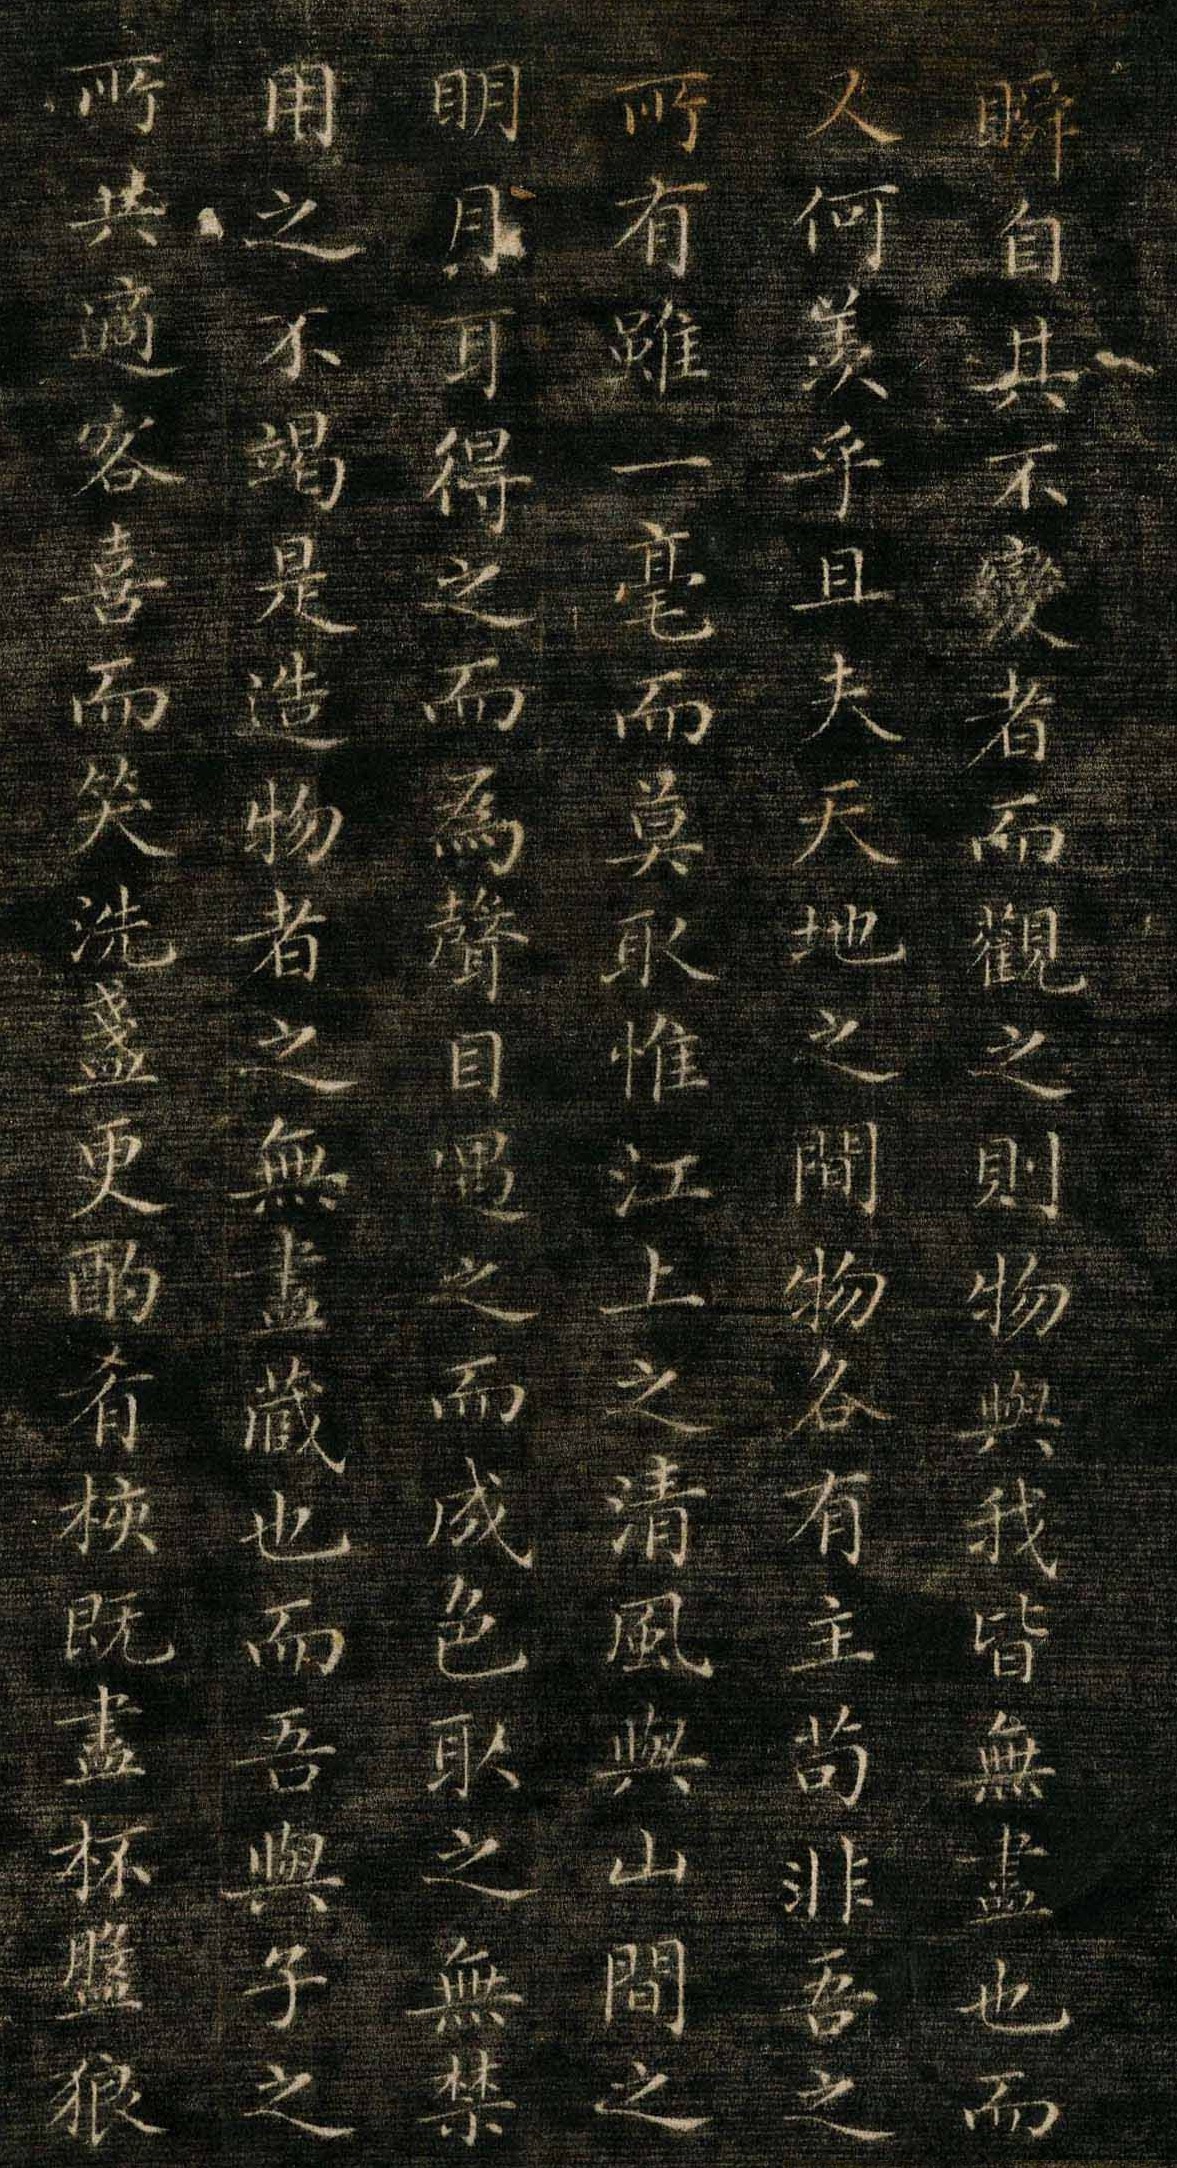 瞬自其不變者而觀之則物與我皆無盡也而
人何羨乎且夫天地之間物各有主茍非吾之
所有雖一毫而莫取惟江上之清風與山間之
明月耳得之而為聲目遇之而成色取之無禁
用之不竭是造物者之無盡藏也而吾與子之
所共適客喜而笑洗盞更酌肴核既盡杯盤狼